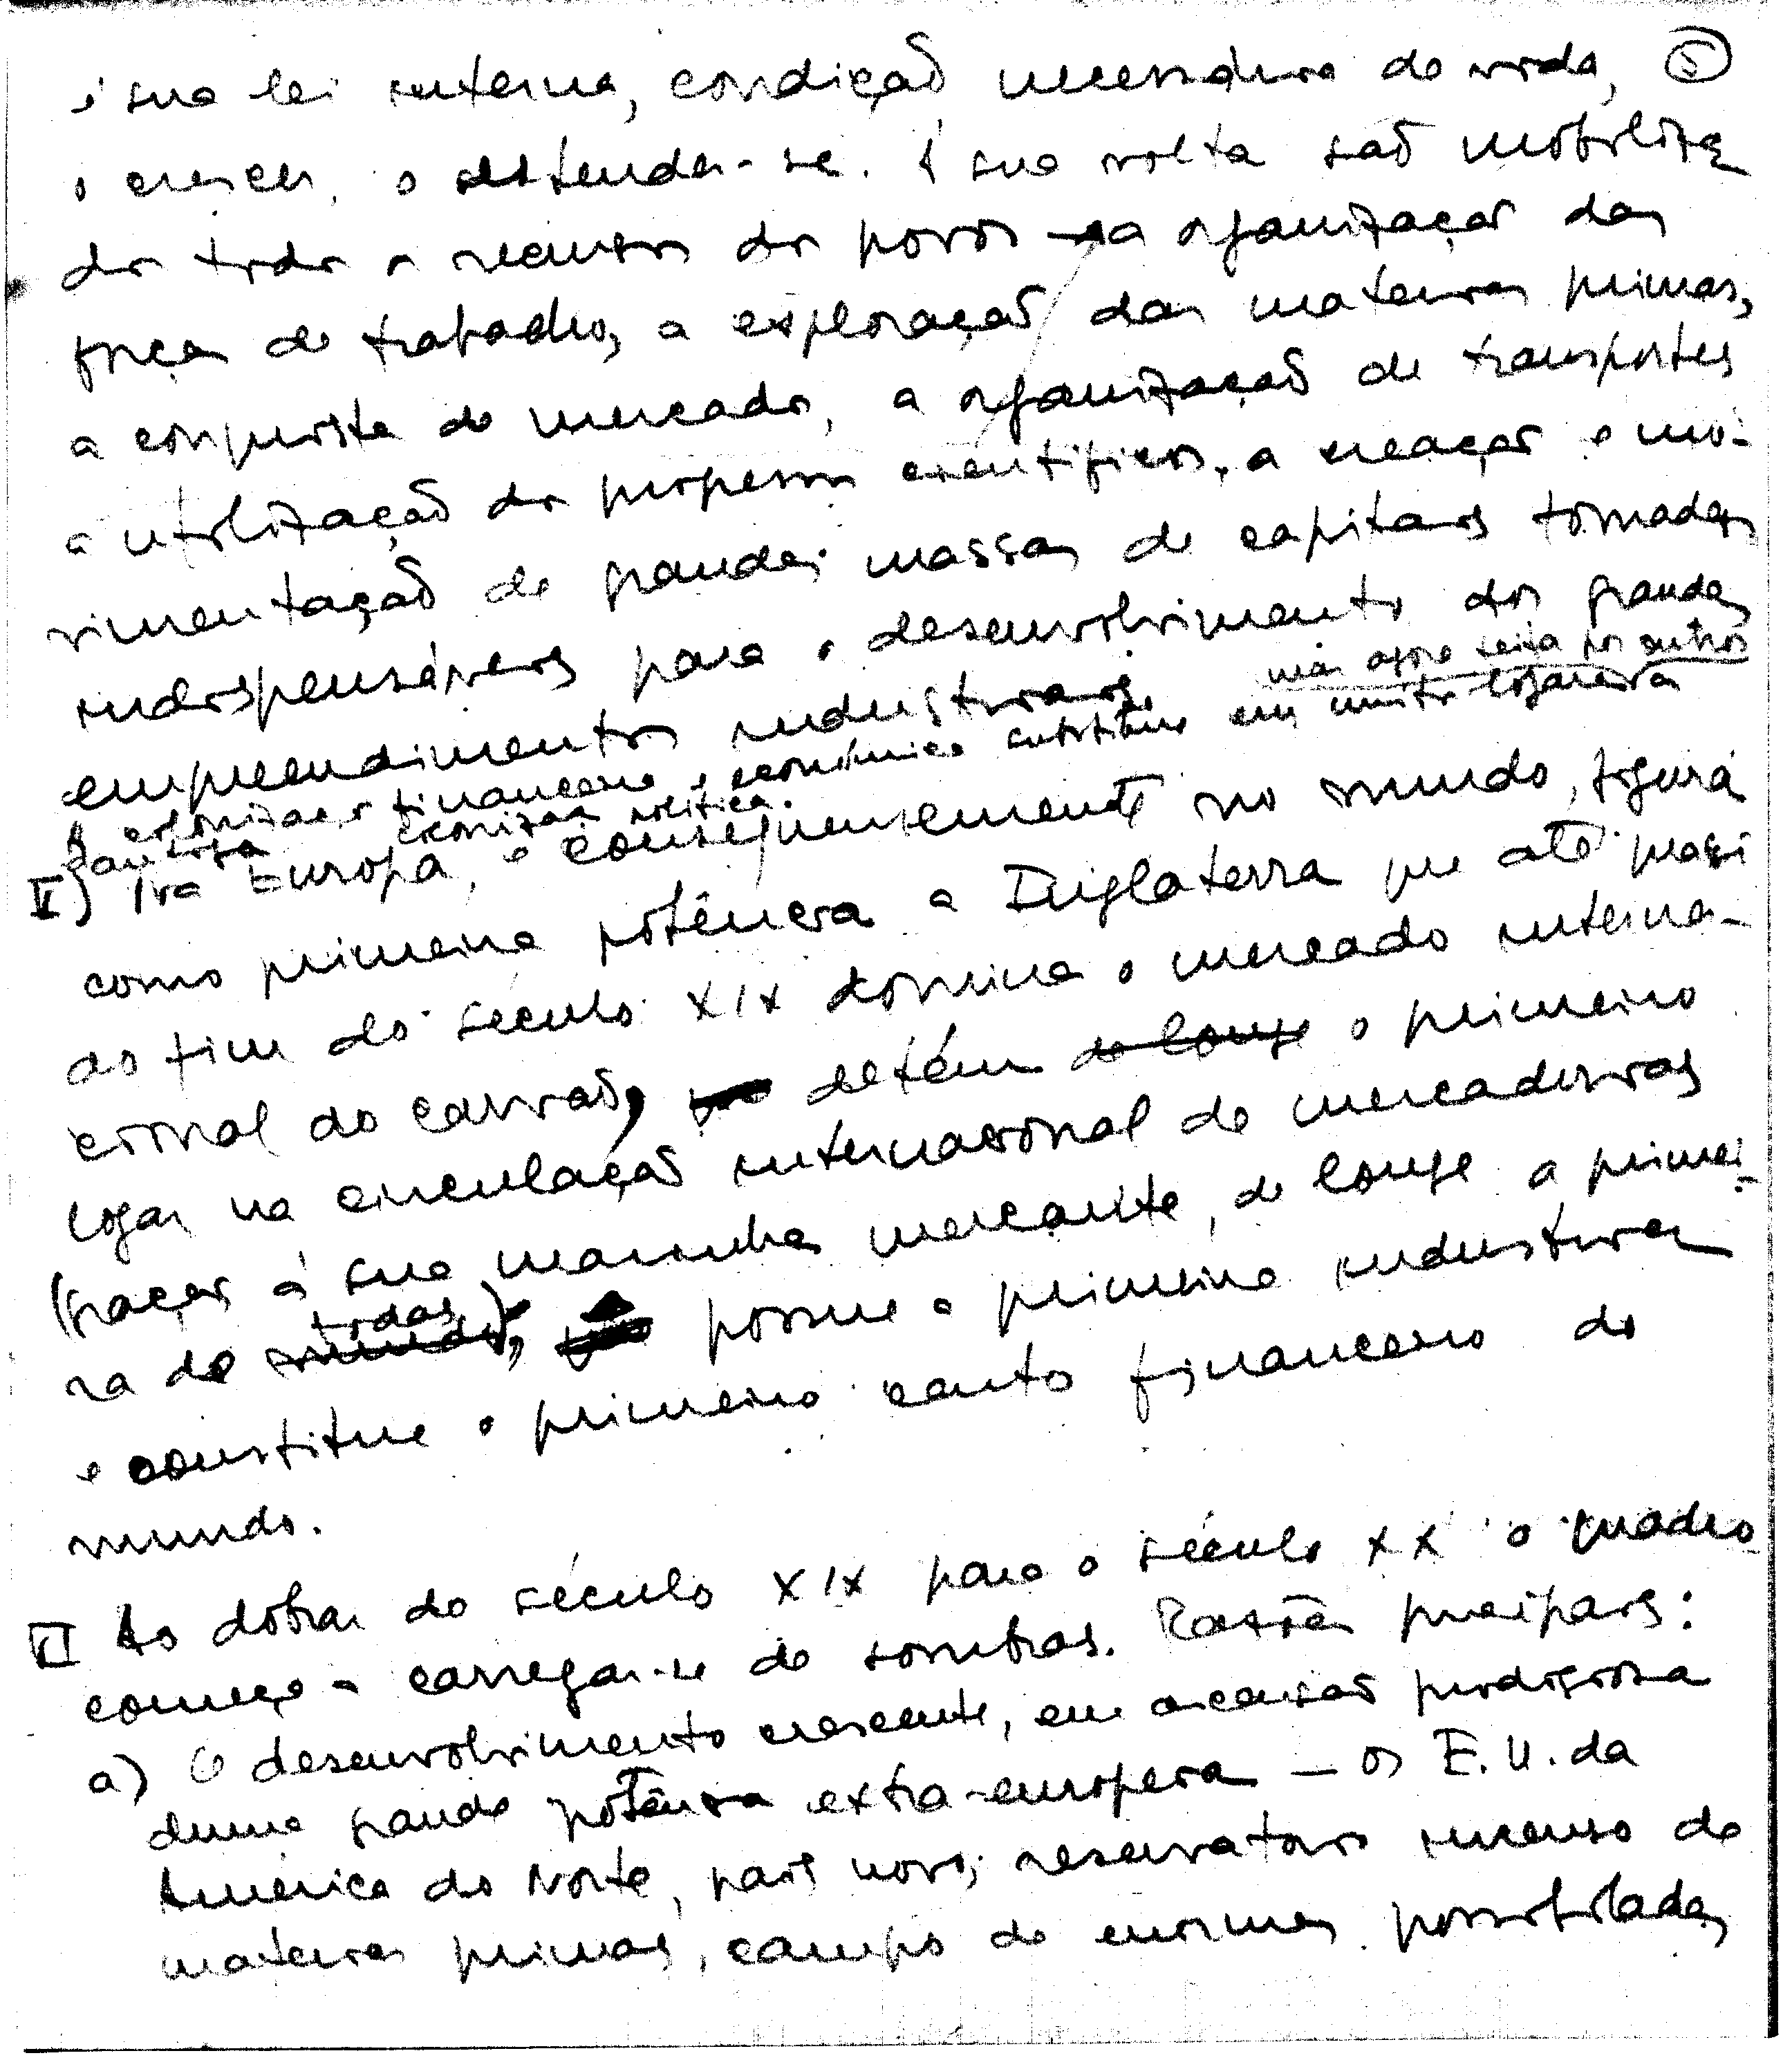 é sua lei interna, condição necessária de vida, ⑤
o crescer, o estender-se. À sua volta são mobiliza
dos todos os recursos dos povos — a organização das
forças de trabalho, a exploração das matérias primas,
a conquista de mercados, a organização de transportes
a utilização dos progressos científicos, a creação e mo-
vimentação de grandes massas de capitais tornadas
indispensáveis para o desenvolvimento dos grandes
empreendimentos industriais.
mas agora feita por outros
A colonização financeira e económica substitue em muitos lugares a
colonização política.
V) Na Europa, e consequensemente no mundo, figura
como primeira potência a Inglaterra que até quasi
ao fim do século XIX domina o mercado interna-
cional do carvão, detém de longe o primeiro
logar na circulação internacional de mercadorias
(graças á sua marinha mercante, de longe a primei-
ra de todas), possue a primeira industria
e constitue o primeiro centro financeiro do
mundo.
VI Ao dobrar do século XIX para o século XX o quadro
começa a carregar-se de sombras. Razões principais:
a) O desenvolvimento crescente, em ascensão prodigiosa
duma grande potência extra-europeia — os E.U. da
América do Norte, país novo, reservatório imenso de
matérias primas, campo de enormes possibilidades